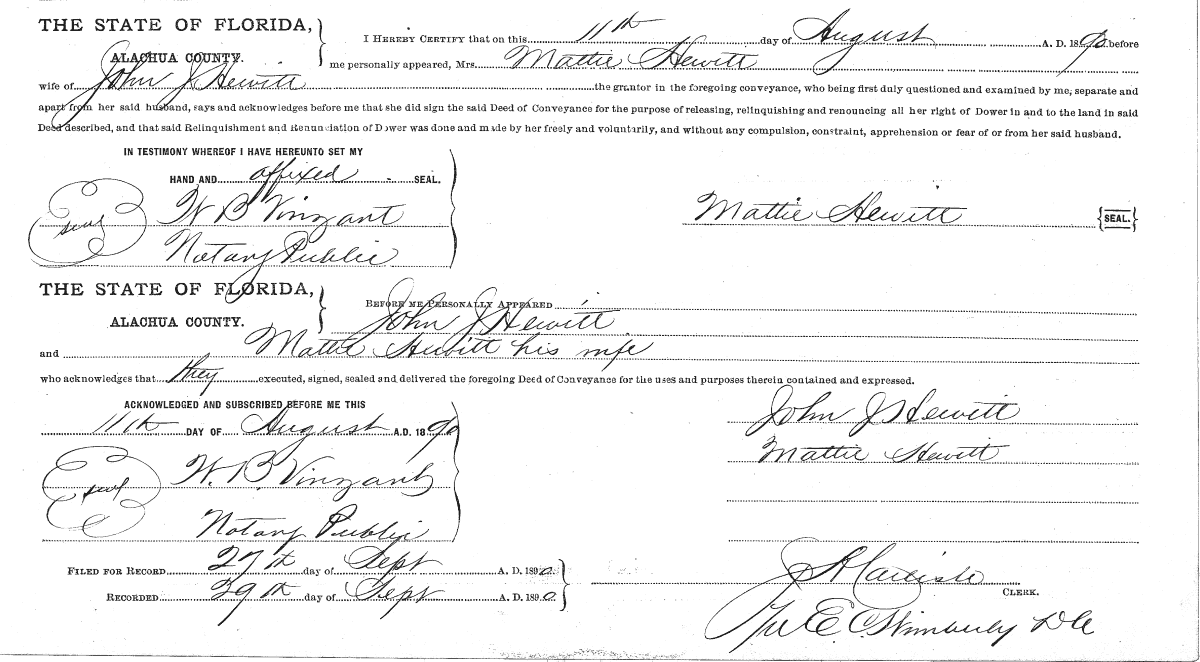 THE STATE OF FLORIDA,
ALACHUA COUNTY.
I HEREBY CERTIFY that on this 11th day of August A. D. 1890 before
me personally appeared, Mrs. Mattie Hewitt
wife of John J Hewitt the grantor in the foregoing conveyance, who being first duly questioned and examined by me, separate and
apart from her said husband, says and acknowledges before me that she did sign the said Deed of Conveyance for the purpose of releasing, relinquishing and renouncing all her right of Dower in and to the land in said
Deed described, and that said Relinquishment and Renunciation of Dower was done and made by her freely and voluntarily, and without any compulsion, constraint, apprehension or fear of or from her said husband.
IN TESTIMONY WHEREOF I HAVE HEREUNTO SET MY
HAND AND affixed SEAL.
seal W B Vinzant
Notary Public
Mattie Hewitt {SEAL.}
THE STATE OF FLORIDA,
ALACHUA COUNTY.
BEFORE ME PERSONALLY APPEARED
John J Hewitt
and Mattie Hewitt his wife
who acknowledges that they executed, signed, sealed and delivered the foregoing Deed of Conveyance for the uses and purposes therein contained and expressed.
ACKNOWLEDGED AND SUBSCRIBED BEFORE ME THIS
11th DAY OF August A.D. 1890
seal W. B. Vinzant
Notary Public
John J Hewitt
Mattie Hewitt
FILED FOR RECORD 27th day of Sept A. D. 1890
RECORDED 29th day of Sept A. D. 1890
Carlisle
CLERK.
E C Wimberly DC